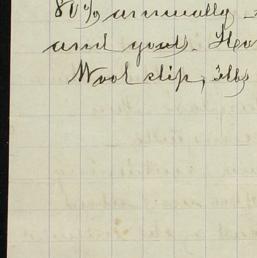 80% annually
and goats. 
Wool clip, lbs